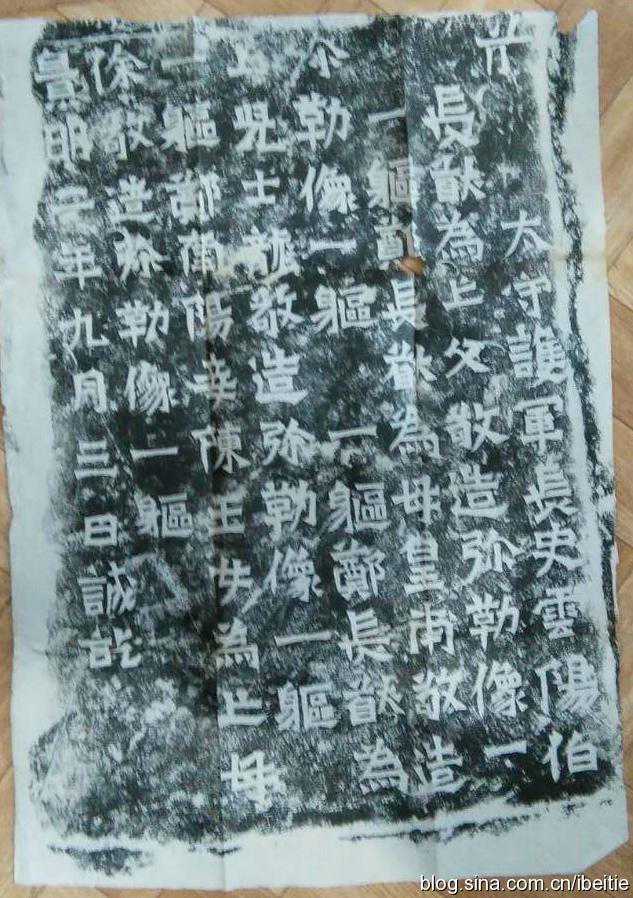 太守護軍長史雲陽伯
長猷為亡父敬造弥勒像一
一軀鄭長猷為母皇甫敬造
弥勒像一軀一軀鄭長猷為
亡兒士龍敬造弥勒像一軀
一軀鄭南陽妾陳玉女為亡母
徐敬造弥勒像一軀
景明二年九月三日誡訖
blog.sina.com.cn/ibeitie